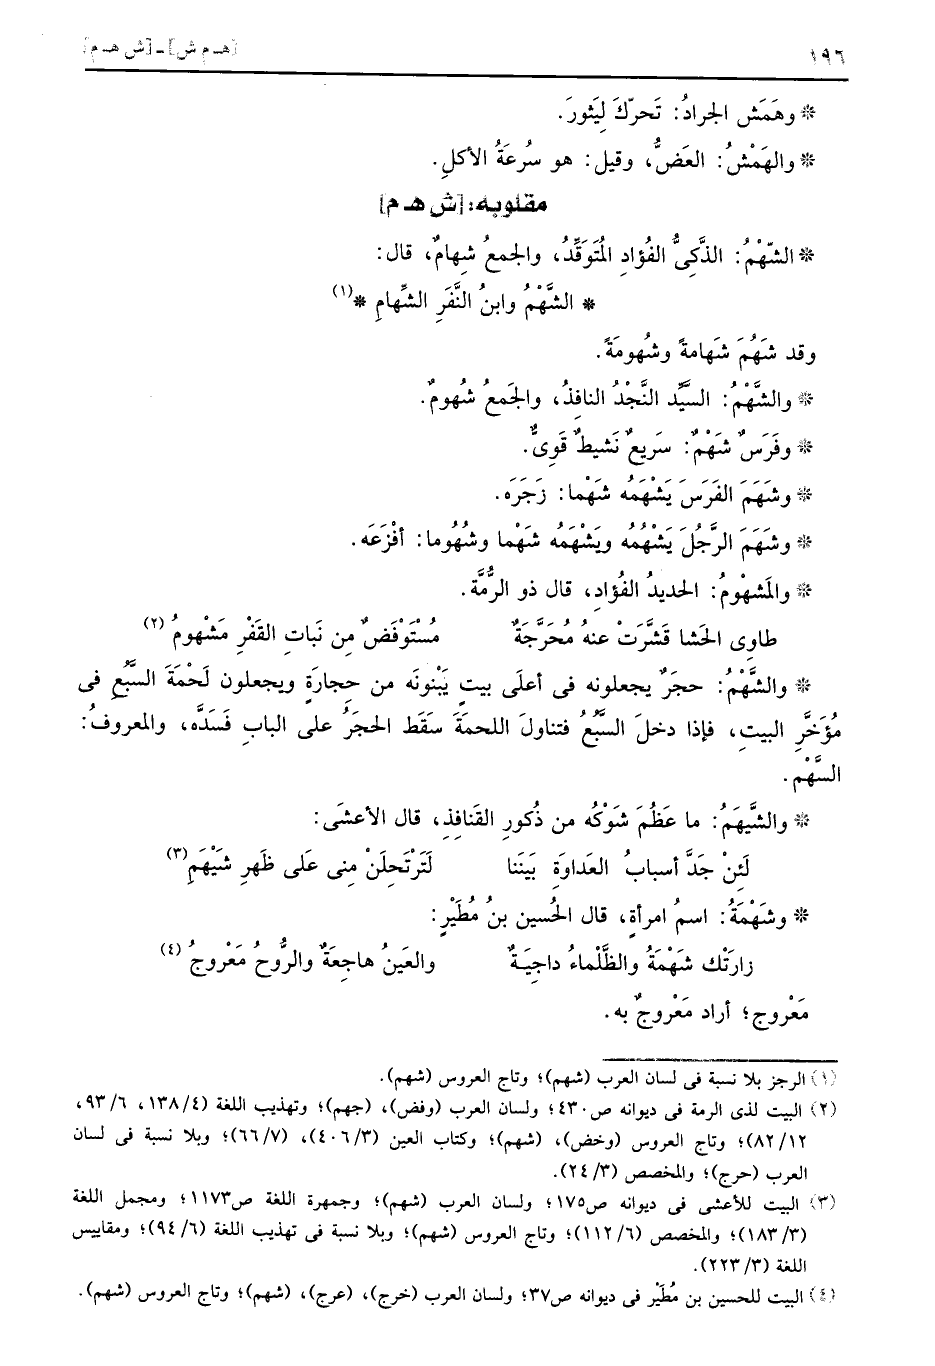 ١٩٦ [هـ م ش] ـ [ش هـ م]
* وهَمَش الجرادُ: تَحرّكَ لِيَثورَ.
* والهَمْشُ: العَضُّ، وقيل: هو سُرعَةُ الأكلِ.
مقلوبه: [ش هـ م]
* الشّهْمُ: الذَّكِىُّ الفُؤادِ المُتَوَقِّدُ، والجمعُ شِهامٌ، قال:
* الشَّهْمُ وابنُ النَّفَرِ الشِّهامِ *(١)
وقد شَهُمَ شَهامةً وشُهومَةً.
* والشَّهْمُ: السيِّد النَّجْدُ النافِذُ، والجَمعُ شُهومٌ.
* وفَرَسٌ شَهْمٌ: سَريعٌ نَشيطٌ قَوِىٌّ.
* وشَهَمَ الفَرَسَ يَشْهَمُه شَهْما: زَجَرَه.
* وشَهَمَ الرَّجُلَ يَشْهُمُه ويَشْهَمُه شَهْما وشُهُوما: أفْزَعَه.
* والمَشْهومُ: الحديدُ الفُؤادِ، قال ذو الرمَُّة.
طاوِى الحَشا قَشَّرَتْ عنه مُحَرَّجَةٌ مُسْتَوْفَضٌ مِن نَباتِ القَفْرِ مَشْهومُ (٢)
* والشَّهْمُ: حجَرٌ يجعلونه فى أعلَى بيتٍ يَبْنونَه من حِجارةٍ ويجعلون لَحْمَةَ السَّبُعِ فى
مُؤَخَّرِ البيتِ، فإذا دخلَ السَّبُعُ فتناولَ اللحمةَ سَقَط الحجَرُ على البابِ فَسَدَّه، والمعروفُ:
السَّهْم.
* والشَّيهَمُ: ما عَظُمَ شَوْكُه من ذُكورِ القَنافِذِ، قال الأعشَى:
لَئِنْ جَدَّ أسبابُ العَداوَةِ بَيَننا لَتَرْتَحِلَنْ مِنى عَلى ظَهرِ شَيْهَمِ(٣)
* وشَهْمَةُ: اسمُ امرأةٍ، قال الحُسين بنُ مُطَيْرٍ:
زارَتْك شَهْمَةُ والظَّلْماءُ داجِيَةٌ والعَينُ هاجِعَةٌ والرُّوحُ مَعْروجُ (٤)
مَعْروج؛ أراد مَعْروجٌ به.
(١) الرجز بلا نسبة فى لسان العرب (شهم)؛ وتاج العروس (شهم).
(٢) البيت لذى الرمة فى ديوانه ص٤٣٠؛ ولسان العرب (وفض)، (جهم)؛ وتهذيب اللغة (٤/١٣٨، ٦/٩٣،
١٢/٨٢)؛ وتاج العروس (وخض)، (شهم)؛ وكتاب العين (٣/٤٠٦)، (٧/٦٦)؛ وبلا نسبة فى لسان
العرب (حرج)؛ والمخصص (٣/٢٤).
(٣) البيت للأعشى فى ديوانه ص١٧٥؛ ولسان العرب (شهم)؛ وجمهرة اللغة ص١١٧٣؛ ومجمل اللغة
(٣/١٨٣)؛ والمخصص (٦/١١٢)؛ وتاج العروس (شهم)؛ وبلا نسبة فى تهذيب اللغة (٦/٩٤)؛ ومقاييس
اللغة (٣/٢٢٣).
(٤) البيت للحسين بن مُطَيْر فى ديوانه ص٣٧؛ ولسان العرب (خرج)، (عرج)، (شهم)؛ وتاج العروس (شهم).